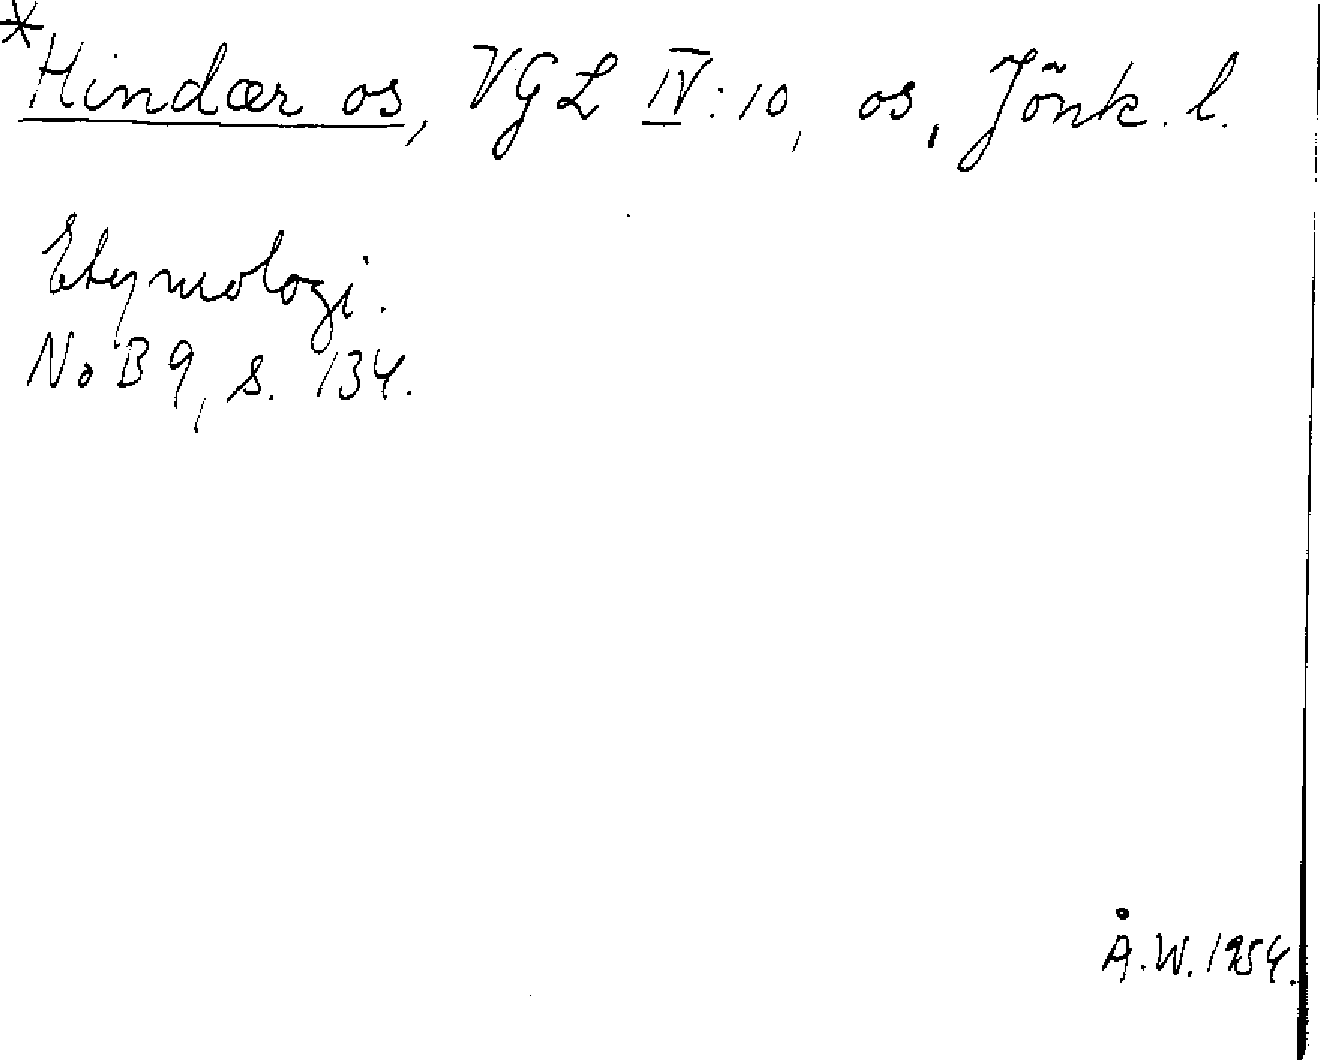 *Hindær os, VGL IV:10, os, Jönk. l.
Etymologi.
NoB 9, s. 134.
Å.W. 1954.